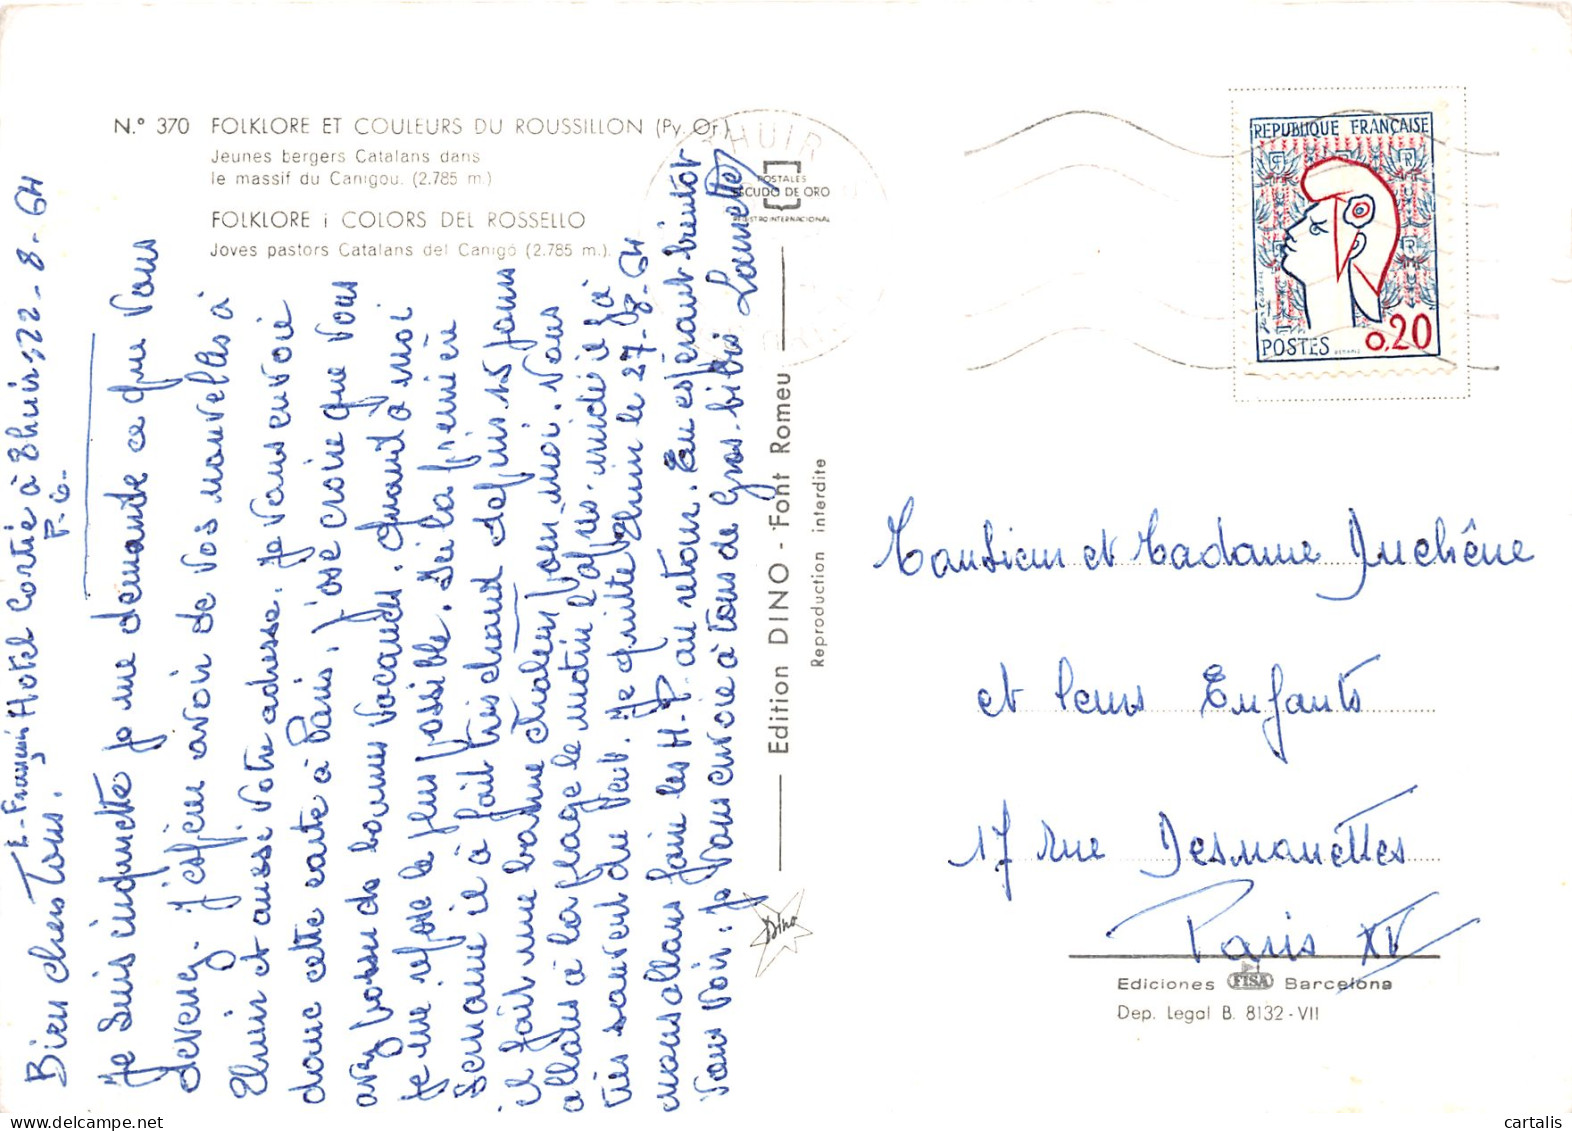 N.° 370 FOLKLORE ET COULEURS DU ROUSSILLON (Py. Or.)
Jeunes bergers Catalans dans
le massif du Canigou. (2.785 m.)
FOLKLORE i COLORS DEL ROSSELLO
Joves pastors Catalans del Canigó (2.785 m.).
THUIR
POSTALES
ESCUDO DE ORO
REGISTRO INTERNACIONAL
Hôtel Cortie à Thuir, 22-8-64
P.O-
Bien chers Tous.
Je suis inquiette je me demande ce que Vous
devenez. J'espérer avoir de vos nouvelles à
Thuir et aussi votre adresse. Je vous envoie
donc cette carte à Paris, j'ose croire que vous
avez passer de bonnes vacances. Quand à moi
je me repose le plus possible. Ici la première
Semaine il à fait très chaud depuis 15 jours
il fait une bonne chaleur pour moi. Nous
allons à la plage le matin l'après-midi il y à
très souvent du vent. Je quitte Thuir le 27-08-64
nous allons faire les H-P. au retour. En espérant bientôt
vous voir. Je vous envoie à tous de gros bibis
Edition DINO - Font Romeu
Reproduction interdite
Dino
REPUBLIQUE FRANÇAISE
POSTES 0,20
Monsieur et Madame Duchêne
et leurs Enfants
17 rue Desnouettes
Paris XV
Ediciones FISA Barcelona
Dep. Legal B. 8132-VII
cartalis